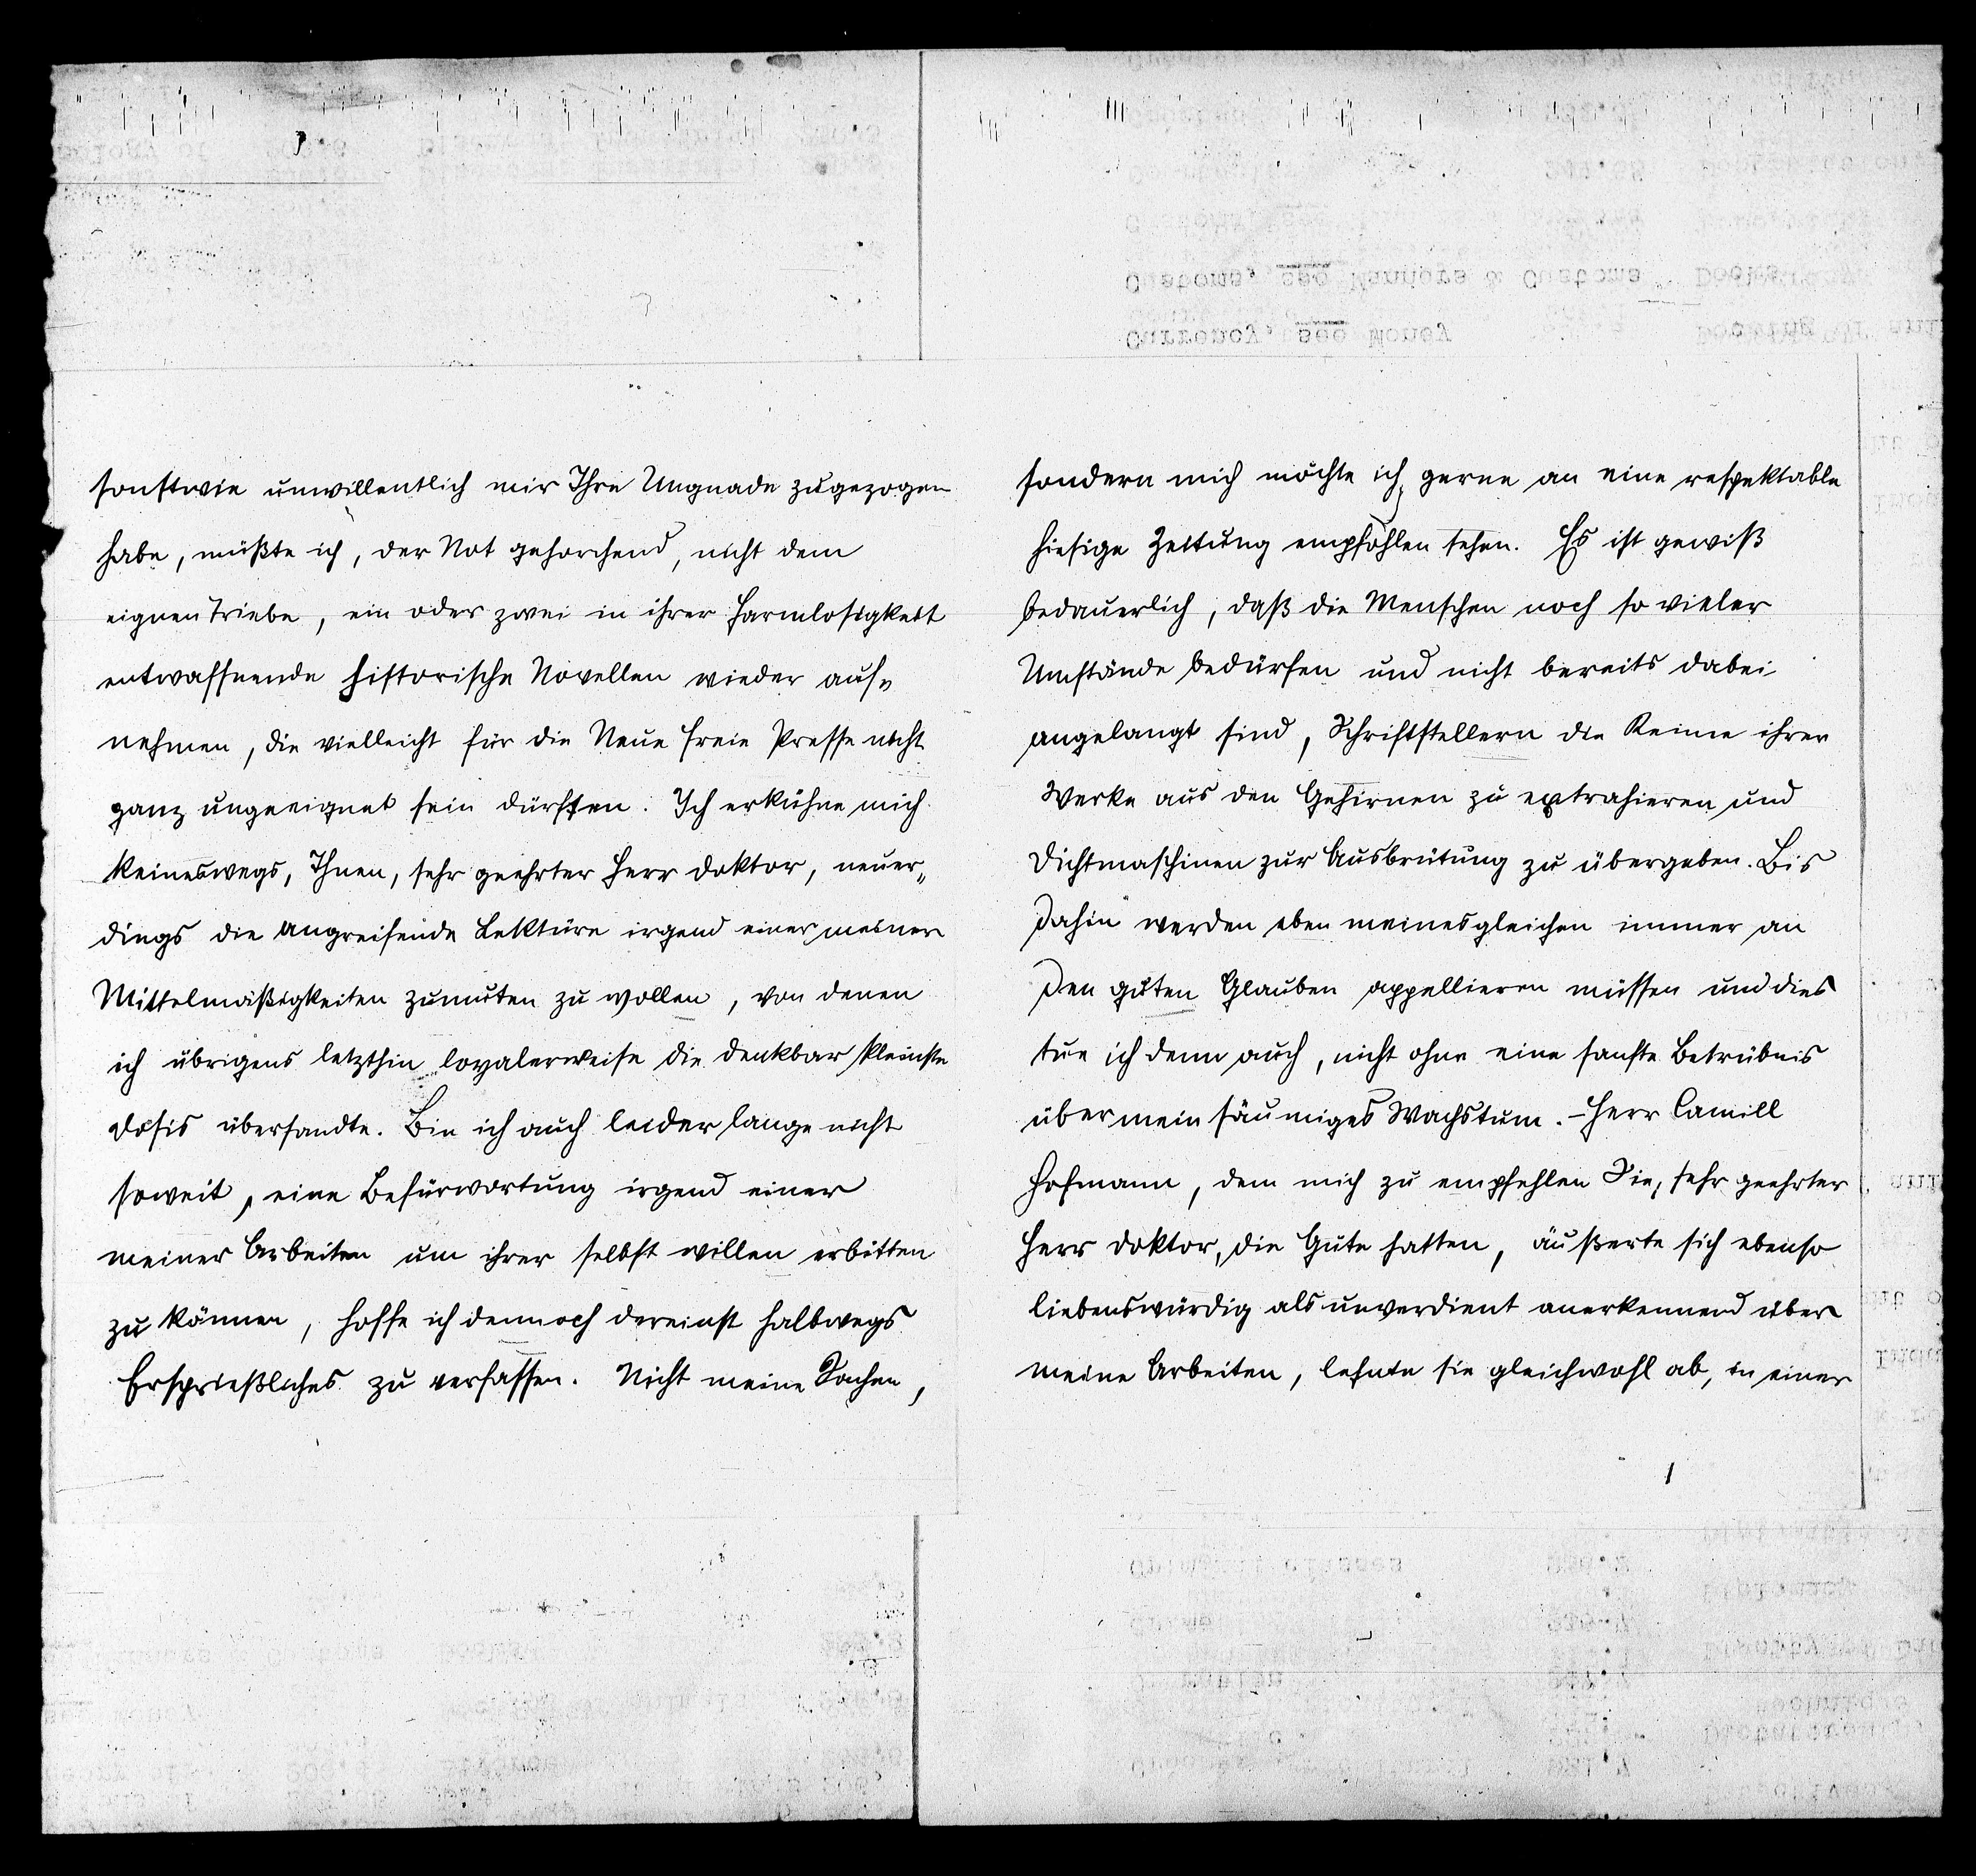 sonstwie unwillentlich mir Ihre Ungnade zugezogen
habe, müßte ich, der Not gehorchend, nicht dem
eignen Triebe, ein oder zwei in ihrer Harmlosigkeit
entwaffnende historische Novellen wieder auf-
nehmen, die vielleicht für die Neue Freie Presse nicht
ganz ungeeignet sein dürften. Ich erkühne mich
keineswegs, Ihnen, sehr geehrter Herr Doktor, neuer-
dings die angreifende Lektüre irgend einer meiner
Mittelmäßigkeiten zumuten zu wollen, von denen
ich übrigens letzthin loyalerweise die denkbar kleinste
Dosis übersandte. Bin ich auch leider lange nicht
soweit, eine Befürwortung irgend einer
meiner Arbeiten um ihrer selbst willen erbitten
zu können, hoffe ich dennoch dereinst halbwegs
Ersprießliches zu verfassen. Nicht meine Sachen,
sondern mich möchte ich gerne an eine respektable
hiesige Zeitung empfohlen sehen. Es ist gewiß
bedauerlich, daß die Menschen noch so vieler
Umstände bedürfen und nicht bereits dabei
angelangt sind, Schriftstellern die Keime ihrer
Werke aus den Gehirnen zu extrahieren und
Dichtmaschinen zur Ausbrütung zu übergeben. Bis
dahin werden eben meinesgleichen immer an
den guten Glauben appellieren müssen und dies
tue ich denn auch, nicht ohne eine sanfte Betrübnis
über mein säumiges Wachstum. – Herr Camill
Hofmann, dem mich zu empfehlen Sie, sehr geehrter
Herr Doktor, die Güte hatten, äußerte sich ebenso
liebenswürdig als unverdient anerkennend über
meine Arbeiten, lehnte sie gleichwohl ab, in einer